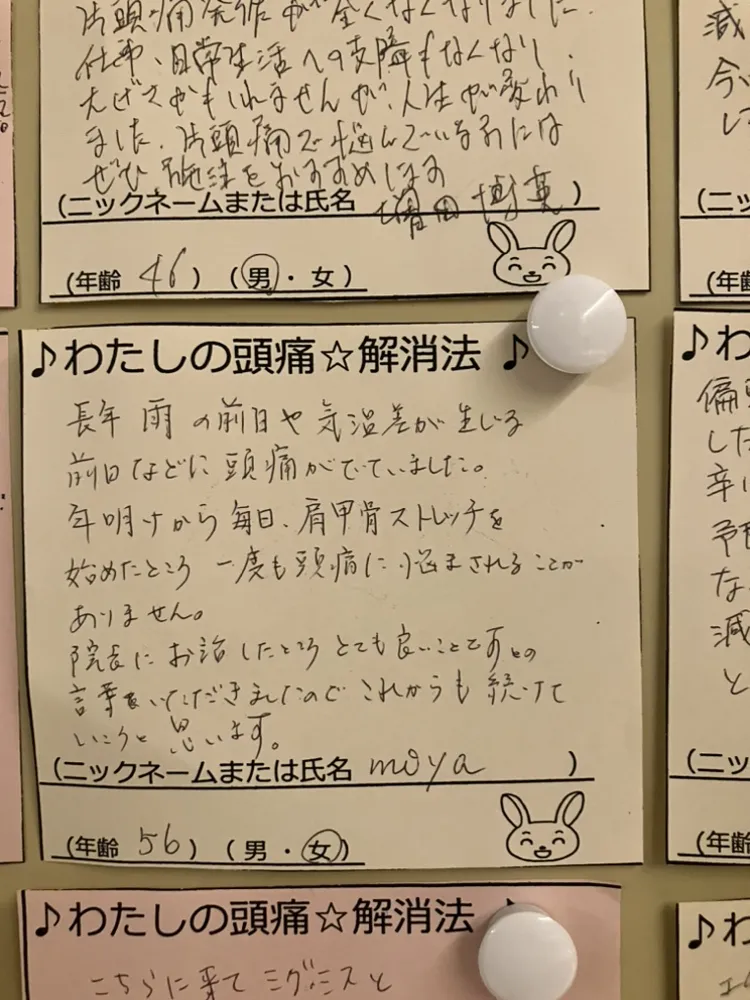 片頭痛発作が全くなくなりました.
仕事、日常生活への支障もなくなり.
大げさかもしれませんが、人生が変わり
ました. 片頭痛で悩んでいる方には
ぜひ をおすすめします
(ニックネームまたは氏名 )
(年齢 46 ) ( 男 ・ 女 )
♪わたしの頭痛☆解消法 ♪
長年 雨 の前日や 気温差が 生じる
前日などに 頭痛がでていました。
年明けから 毎日、肩甲骨ストレッチを
始めたところ 一度も頭痛に 悩まされることが
ありません。
院長に お話ししたところ とても良いことですとの
言葉をいただきましたので これからも 続けて
いこうと 思います。
(ニックネームまたは氏名 moya )
(年齢 56 ) ( 男 ・ 女 )
♪わたしの頭痛☆解消法
こちらに来て ミグシスと
減
今
し
(ニッ
(年齢
♪わ
偏
した
辛い
予
な
減
と
(ニッ
(年齢
♪わ